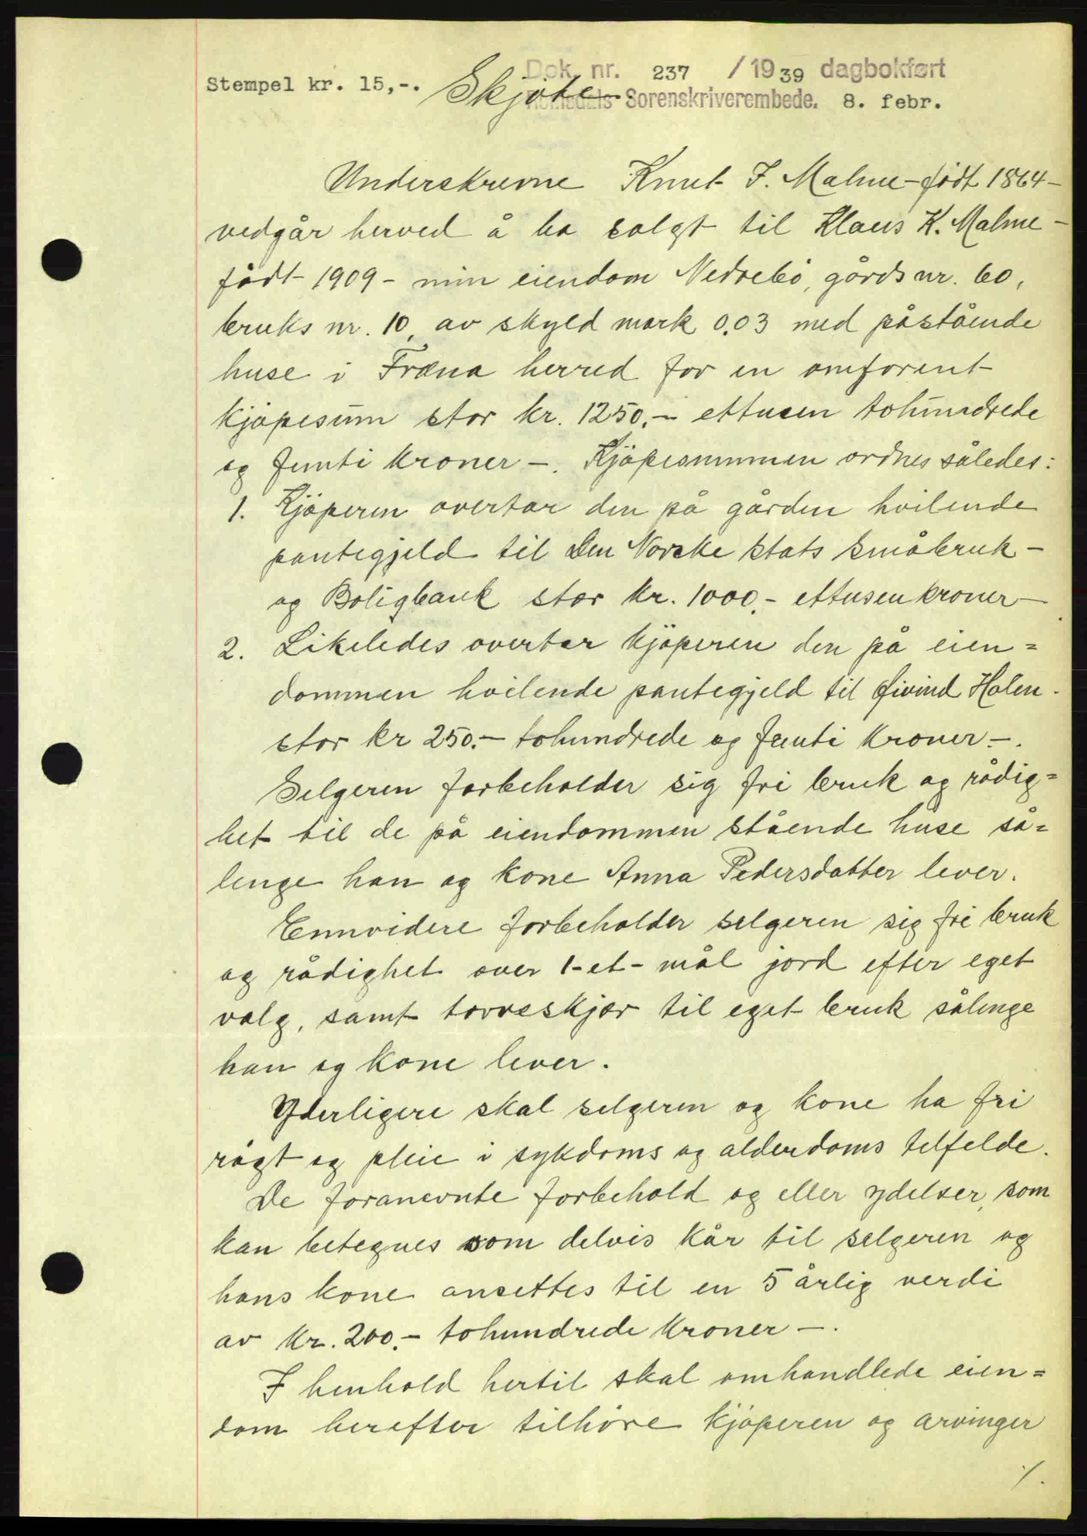 Dok. nr. 237 / 1939 dagbokført
Stempel kr. 15,-. Skjøte Romsdals Sorenskriverembede. 8. febr.
Underskrevne Knut I. Malme - født 1864 -
vedgår herved å ha solgt til Klaus K. Malme -
født 1909 - min eiendom Nedrebö, gårds nr. 60,
bruks nr. 10, av skyld mark 0,03 med påstående
huse i Fræna herred for en omforent
kjøpesum stor kr. 1250.- ettusen tohundrede
og femti kroner -. Kjøpesummen ordnes således:
1. Kjøperen overtar den på gården hvilende
pantegjeld til Den Norske Stats Småbruk -
og Boligbank stor kr. 1000.- ettusen kroner -
2. Likeledes overtar kjøperen den på eien=
dommen hvilende pantegjeld til Øivind Holen -
stor kr 250.- tohundrede og femti kroner -.
Selgeren forbeholder sig fri bruk og rådig=
het til de på eiendommen stående huse så=
lenge han og kone Anna Pedersdatter lever.
Ennvidere forbeholder selgeren sig fri bruk
og rådighet over 1-et- mål jord efter eget
valg, samt torvskjær til eget bruk sålenge
han og kone lever.
Yderligere skal selgeren og kone ha fri
røgt og pleie i sykdoms og alderdoms tilfelde.
De forannevnte forbehold og eller ydelser, som
kan betegnes som delvis kår til selgeren og
hans kone ansettes til en 5 årlig verdi
av kr. 200.- tohundrede kroner -.
I henhold hertil skal omhandlede eien=
dom herefter tilhøre kjøperen og arvinger
./.